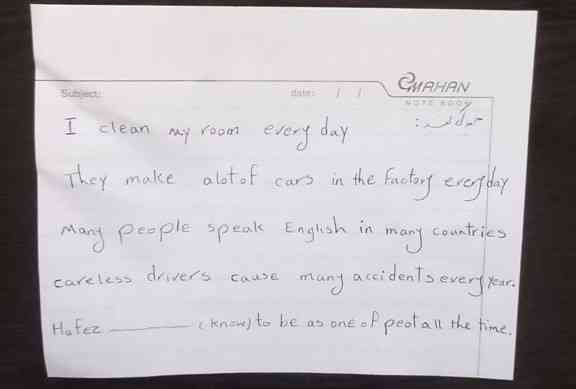 MAHAN
NOTE BOOK
Subject:
date: / /
I clean my room every day
They make alot of cars in the Factory everyday
Many people speak English in many countries
careless drivers cause many accidents every year.
Hafez ________ (know) to be as one of peot all the time.